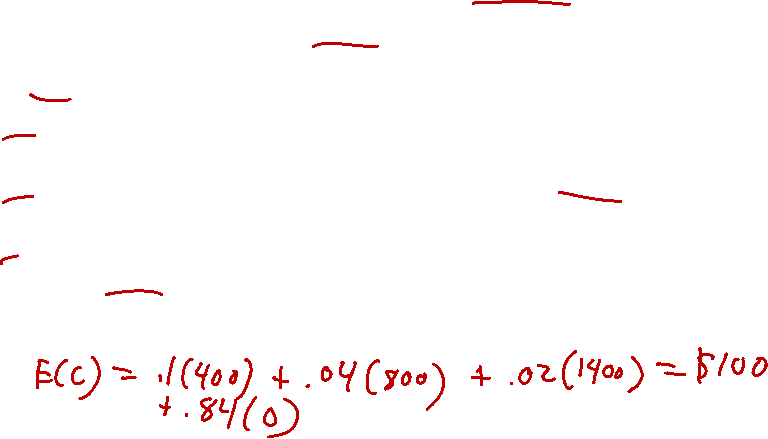 E(C) = .1(400) + .04(800) + .02(1400) = $100
+ .84(0)